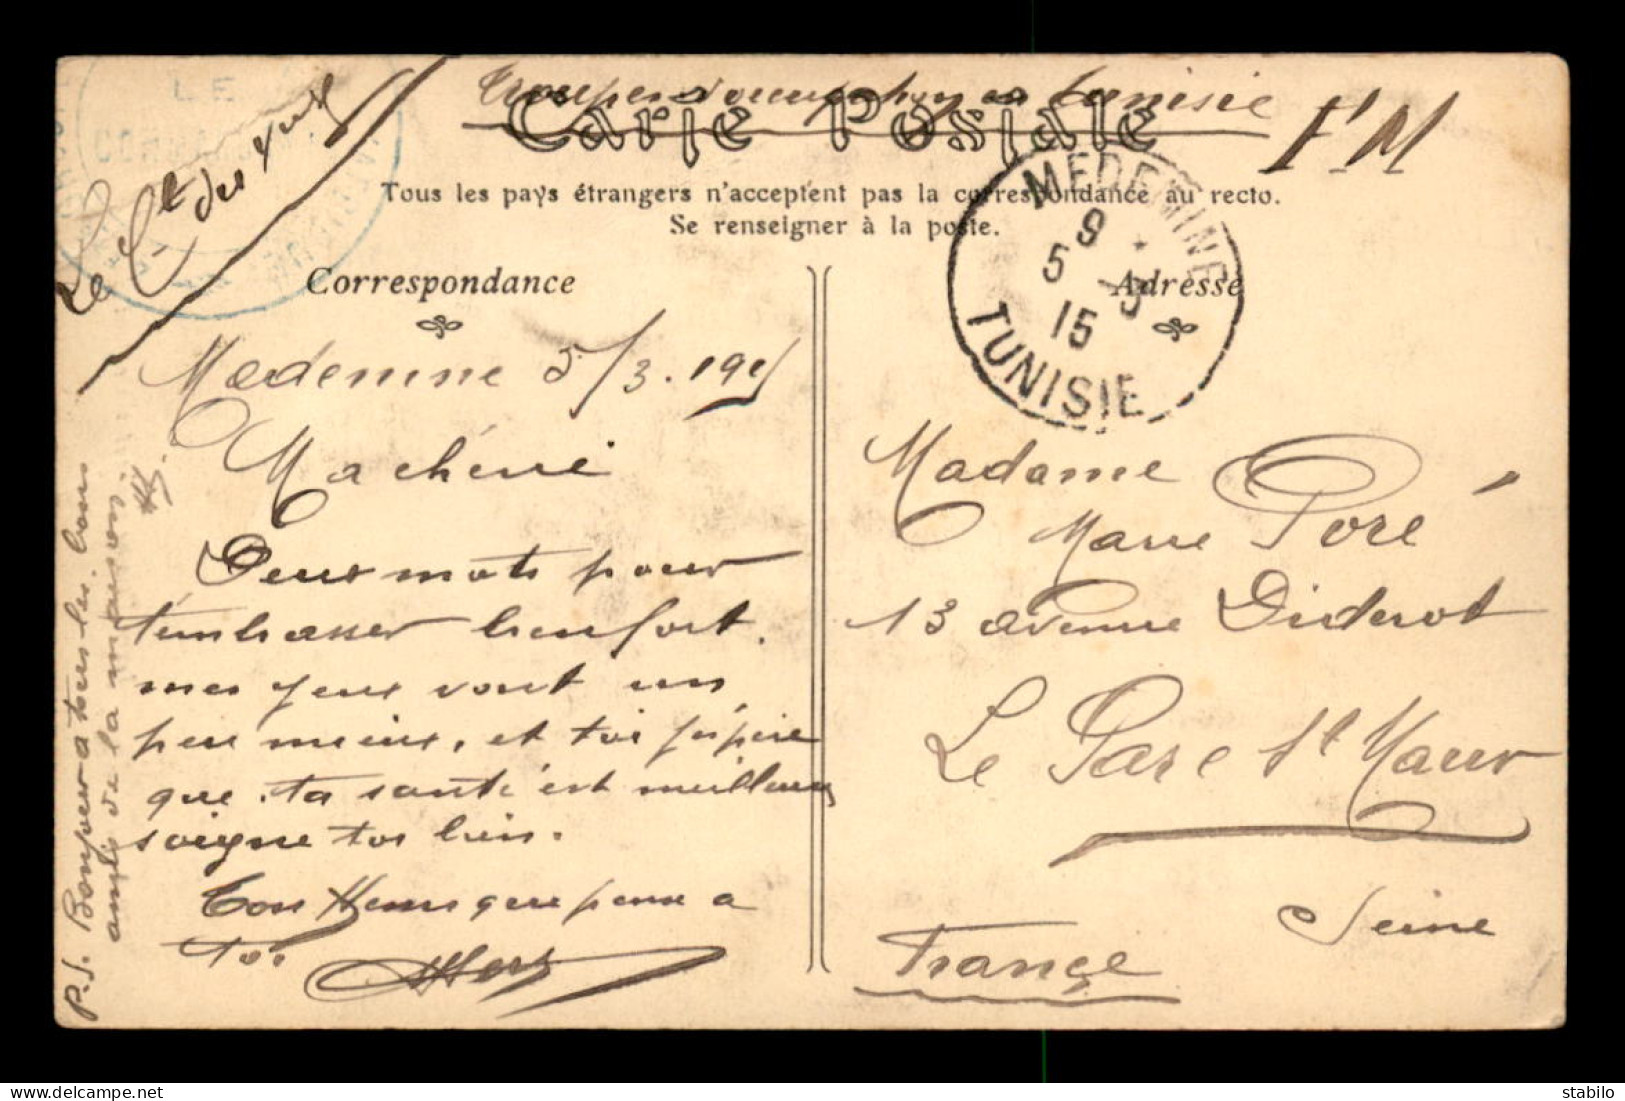 Troupes d'occupation en Tunisie
F M
Carte Postale
Tous les pays étrangers n'acceptent pas la correspondance au recto.
Se renseigner à la poste.
LE
Le Ct des
Correspondance
Medenine 5/3. 1915
Ma chérie
Deux mots pour
t'embrasser bien fort.
mes yeux vont un
peu mieux, et toi j'espère
que ta santé est meilleure
soigne toi bien.
Ton Henri que pense a
toi
P.S. Bonjour a tous les bons
amis de la maison.
MEDENINE
9
5 -3
15
TUNISIE
Adresse
Madame
Marie Poré
13 avenue Diderot
Le Parc St Maur
Seine
France
stabilo